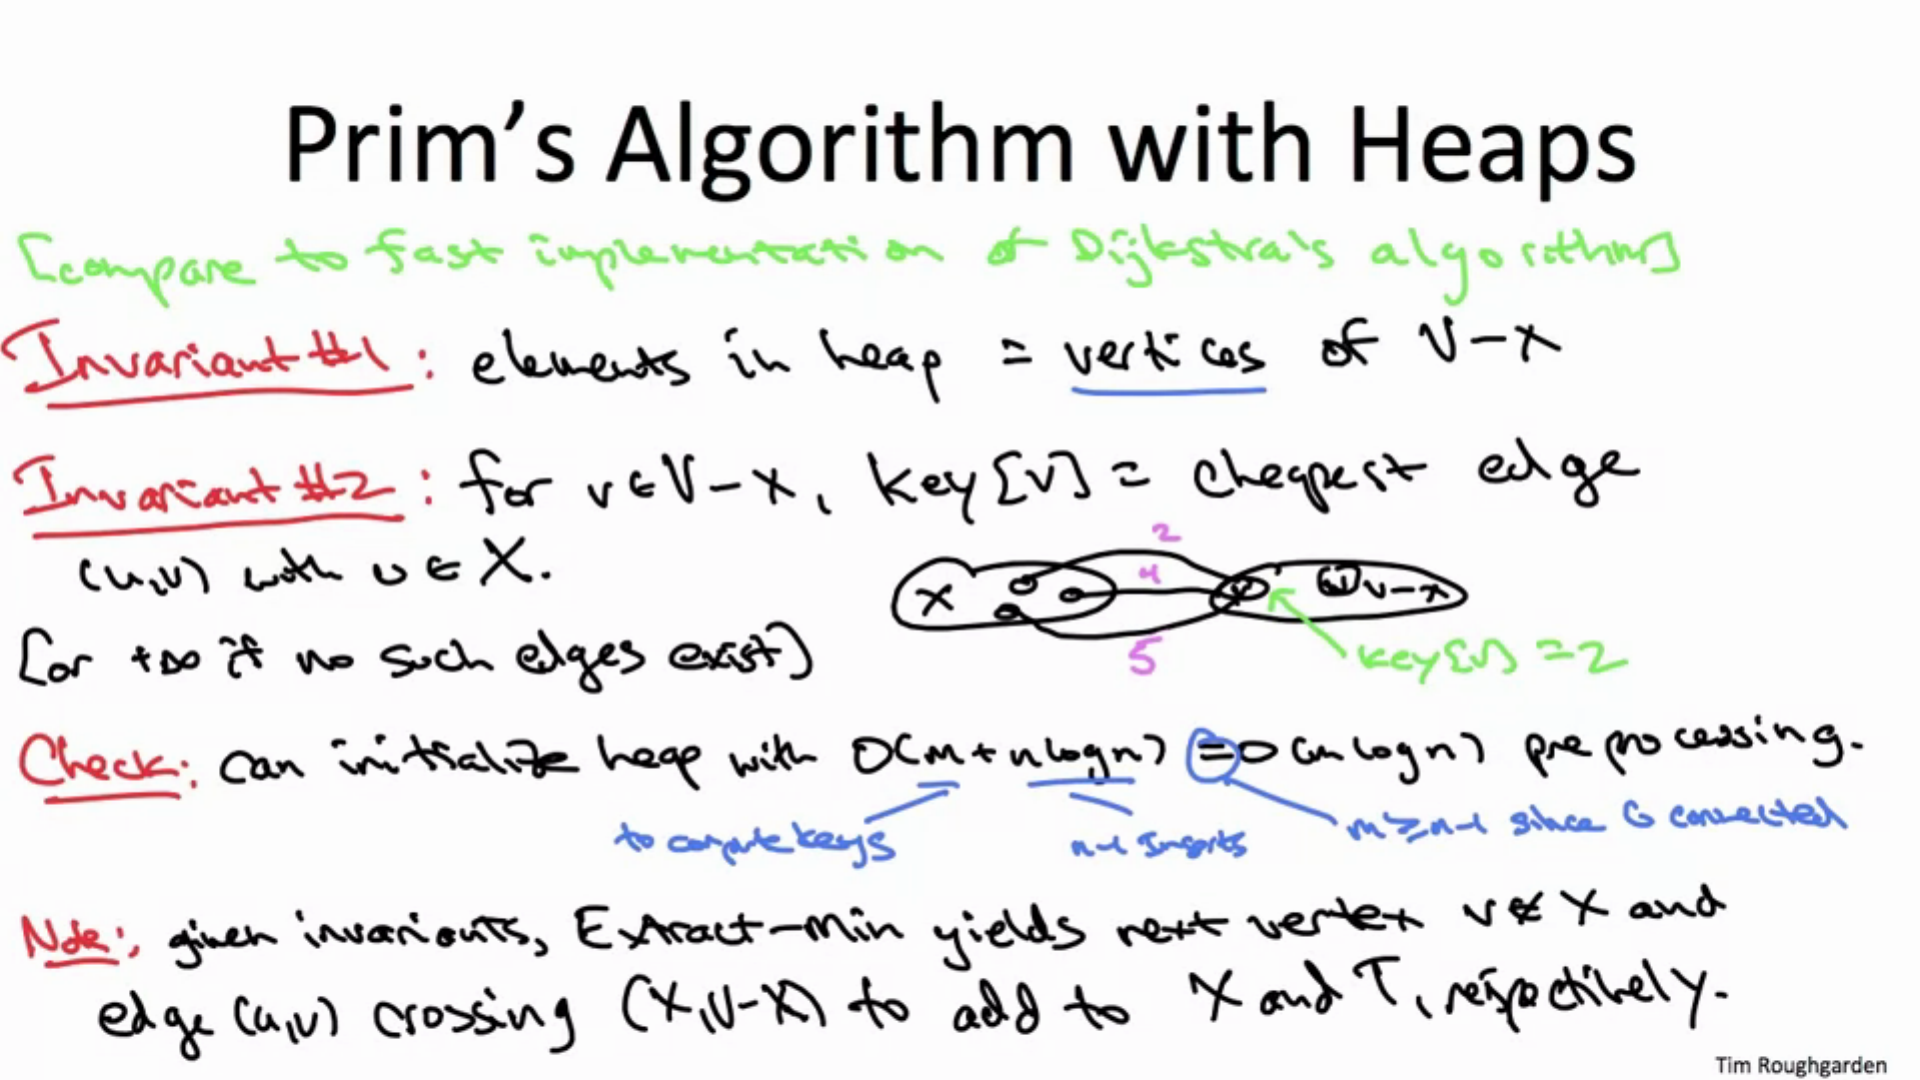 Prim's Algorithm with Heaps
[compare to fast implementation of Dijkstra's algorithm]
Invariant #1: elements in heap = vertices of V-X
Invariant #2: for v ∈ V-X, key[v] = cheapest edge
(u,v) with u ∈ X.
2
4
X v w V-X
[or +∞ if no such edges exist]
5
key[v] = 2
Check: can initialize heap with O(m + n log n) = O(m log n) preprocessing.
to compute keys n-1 Inserts m ≥ n-1 since G connected
Note: given invariants, Extract-Min yields next vertex v ∉ X and
edge (u,v) crossing (X, V-X) to add to X and T, respectively.
Tim Roughgarden